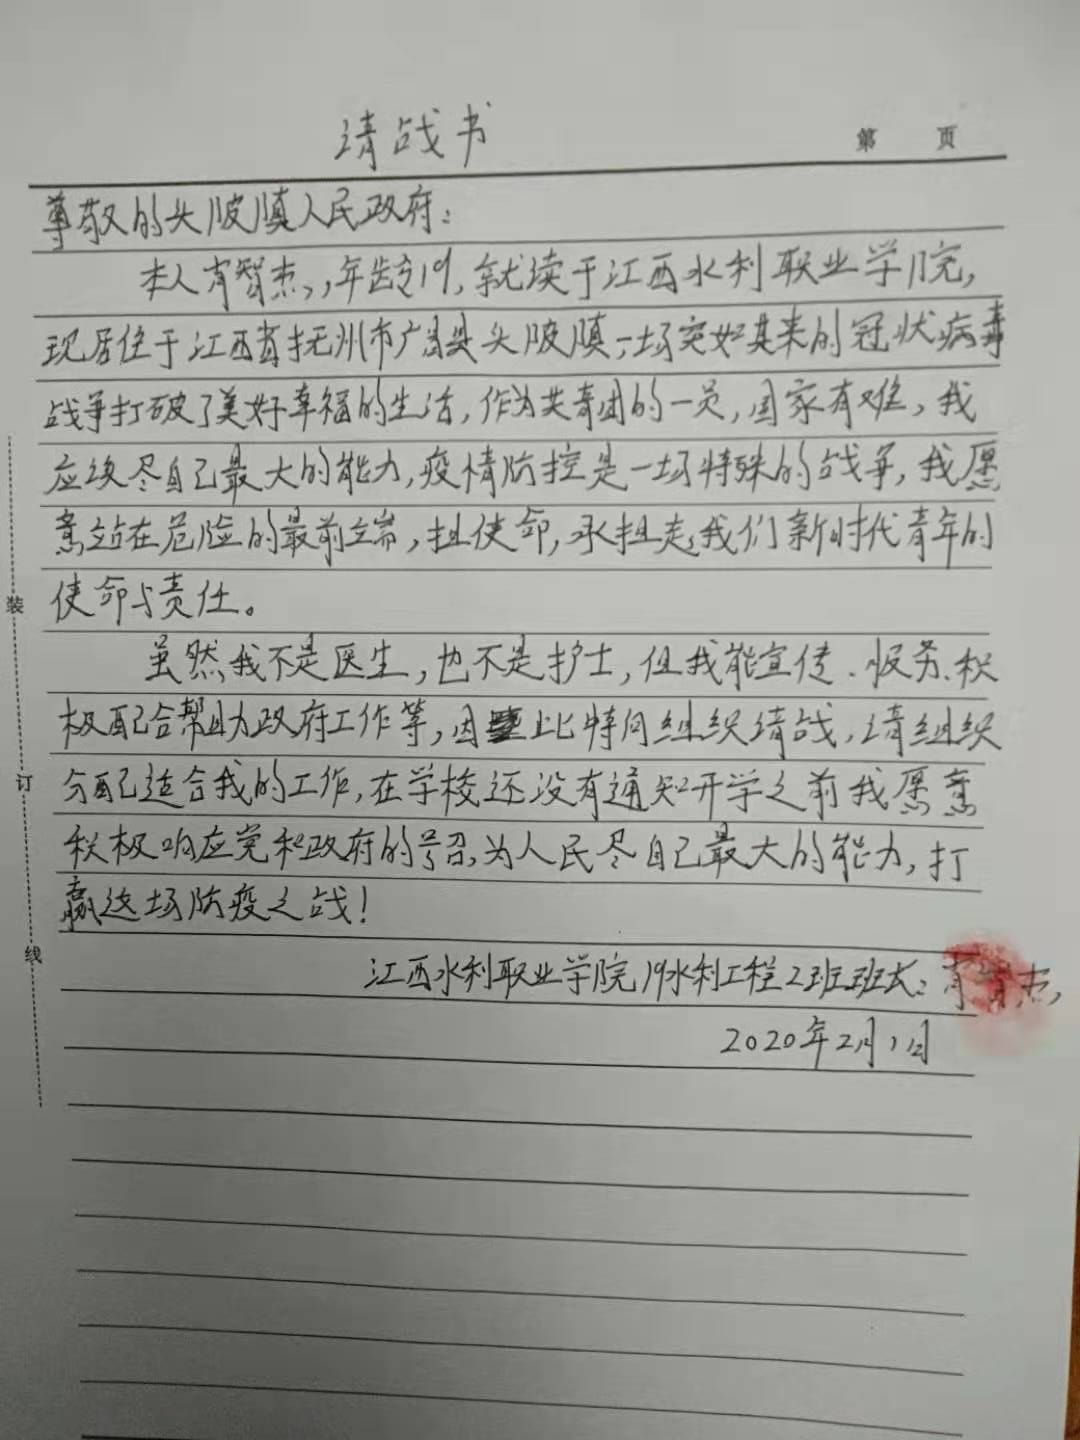 请战书
第 页
尊敬的头陂镇人民政府：
本人有智杰，年龄19，就读于江西水利职业学院，
现居住于江西省抚州市广昌县头陂镇，一场突如其来的冠状病毒
战争打破了美好幸福的生活，作为共青团的一员，国家有难，我
应该尽自己最大的能力，疫情防控是一场特殊的战争，我愿
意站在危险的最前端，担使命，承担走我们新时代青年的
使命与责任。
虽然我不是医生，也不是护士，但我能宣传、服务、积
极配合帮助政府工作等，因此特向组织请战，请组织
分配适合我的工作，在学校还没有通知开学之前我愿意
积极响应党和政府的号召，为人民尽自己最大的能力，打
赢这场防疫之战！
江西水利职业学院19水利工程2班班长：
2020年2月1日
装
订
线